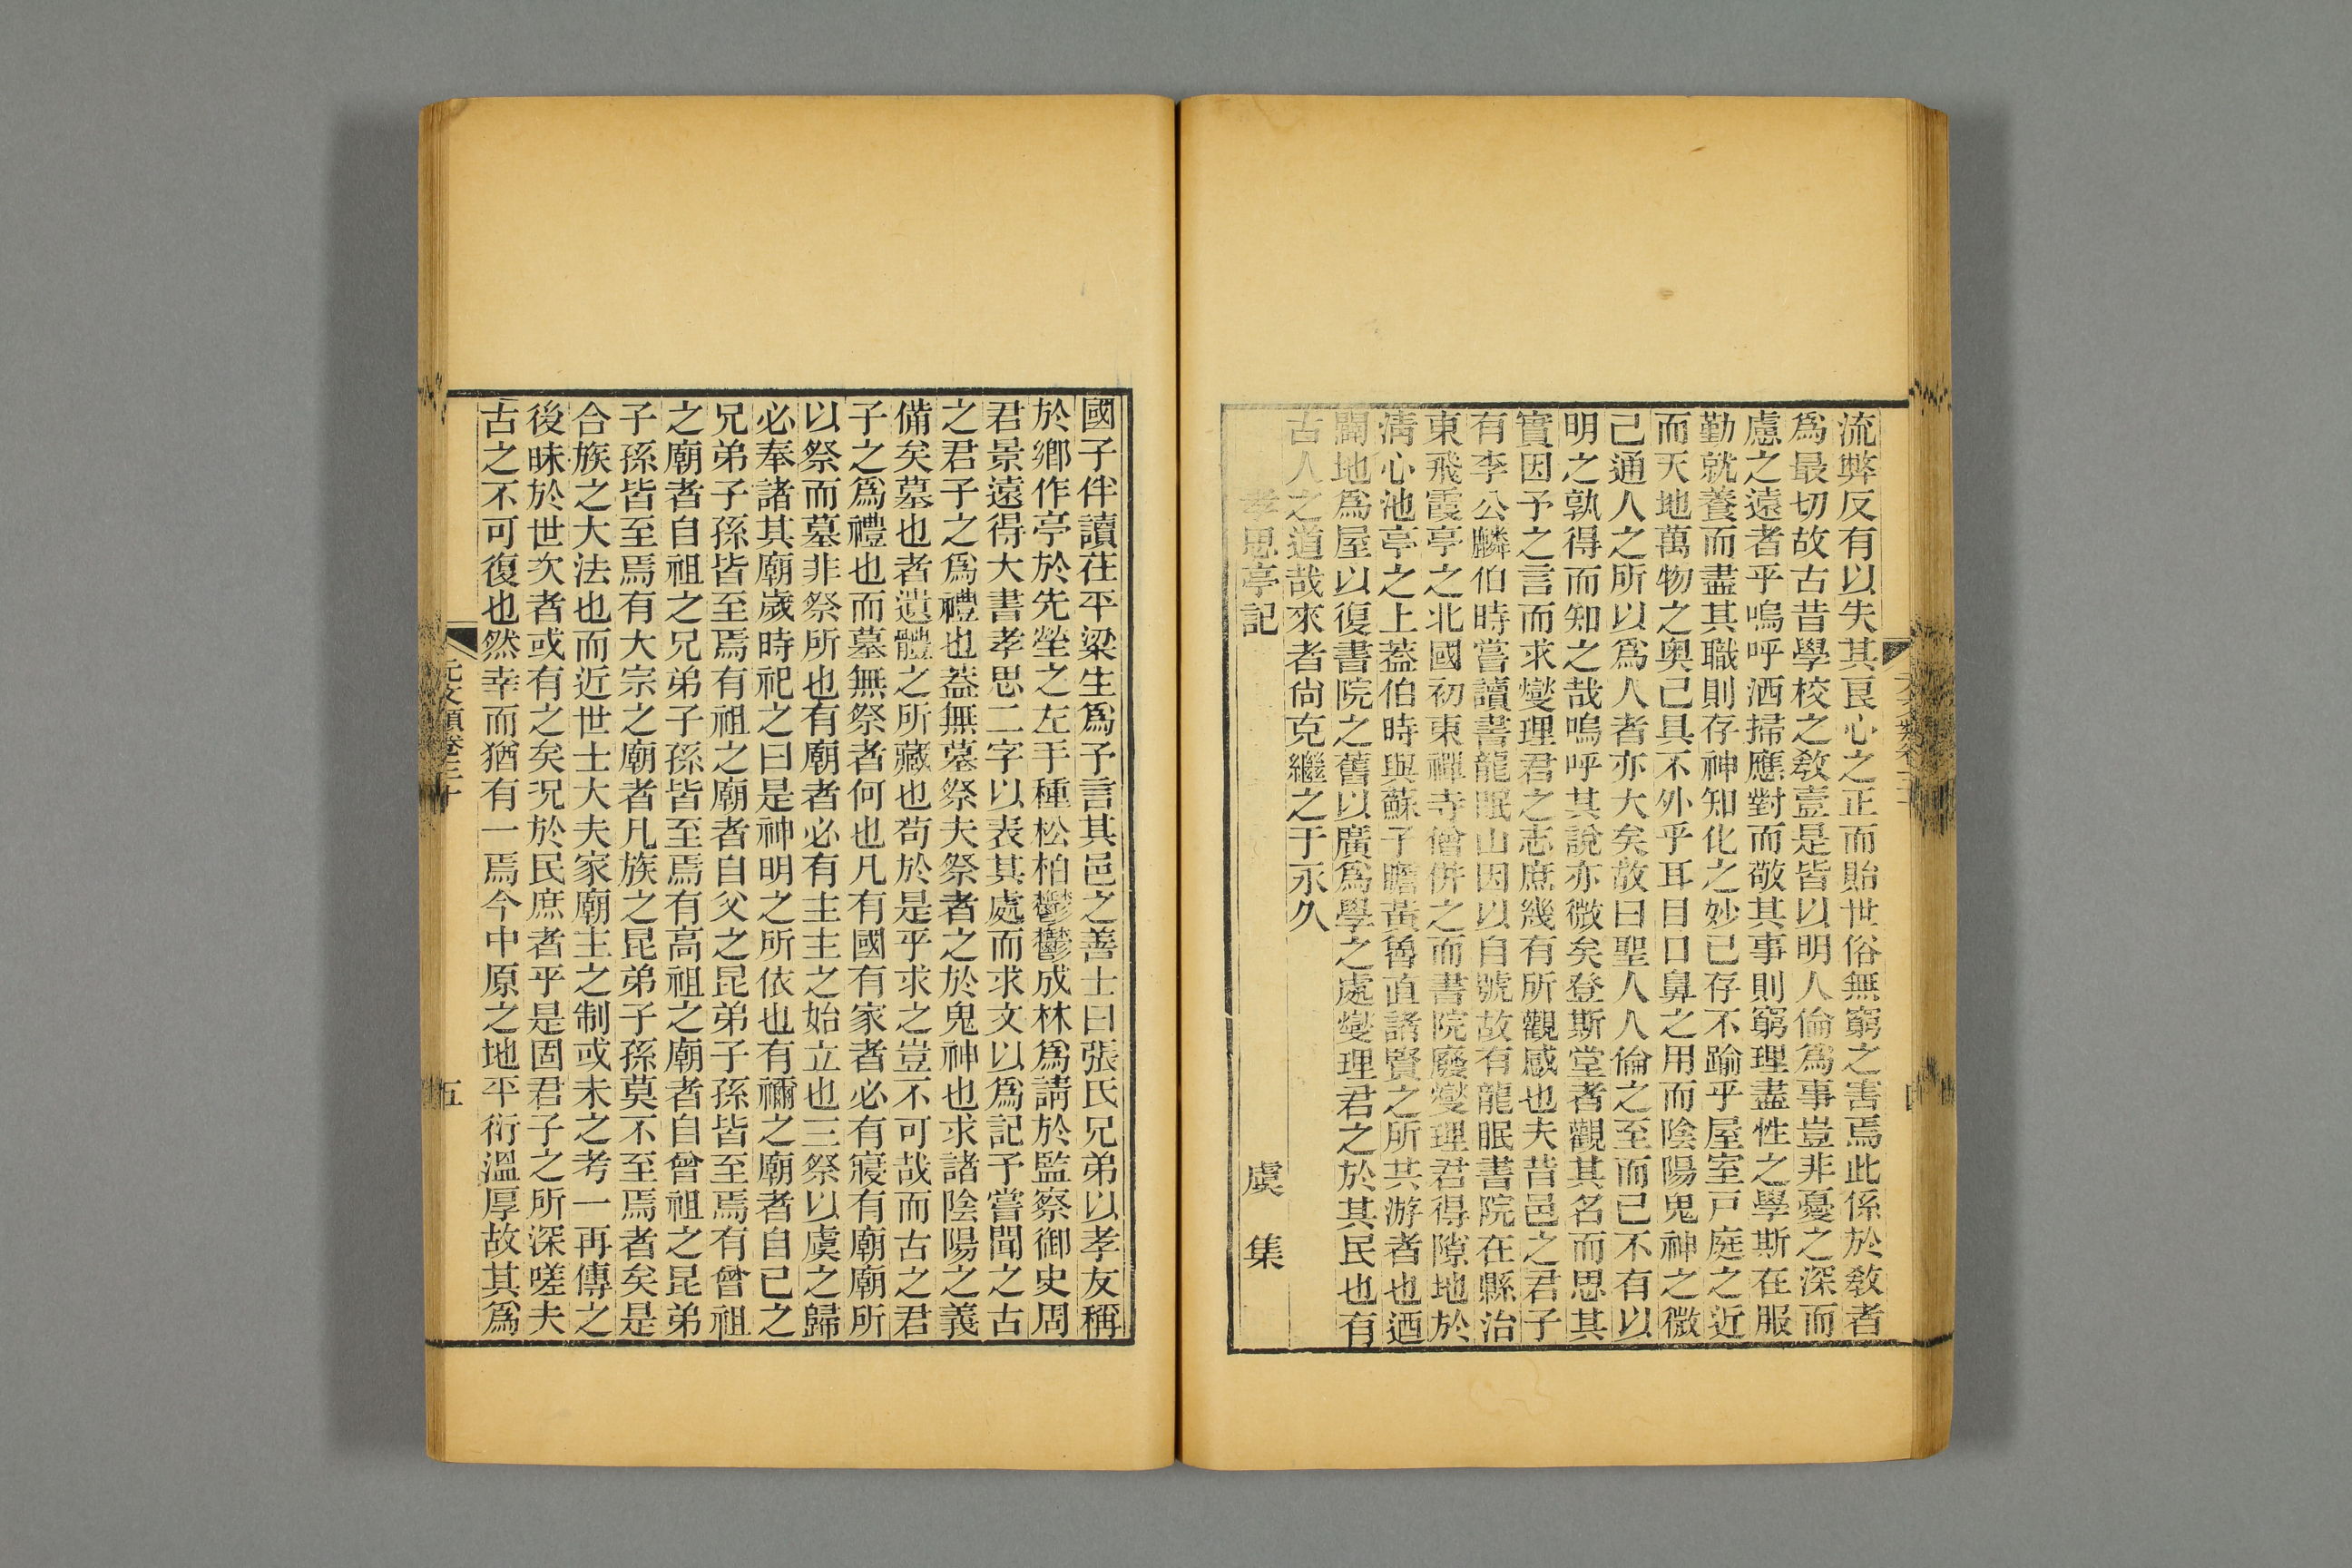 流弊反有以失其良心之正而貽世俗無窮之害焉此係於敎者
爲最切故古昔學校之敎壹是皆以明人倫爲事豈非憂之深而
慮之遠者乎嗚呼洒掃應對而敬其事則窮理盡性之學斯在服
勤就養而盡其職則存神知化之妙已存不踰乎屋室戸庭之近
而天地萬物之奥己具不外乎耳目口鼻之用而陰陽鬼神之微
己通人之所以爲人者亦大矣故曰聖人人倫之至而已不有以
明之孰得而知之哉嗚呼其說亦微矣登斯堂者觀其名而思其
實因予之言而求燮理君之志庶幾有所觀感也夫昔邑之君子
有李公麟伯時嘗讀書龍眠山因以自號故有龍眠書院在縣治
東飛霞亭之北國初東禪寺僧併之而書院廢燮理君得隙地於
淸心池亭之上葢伯時與蘇子瞻黃魯直諸賢之所共游者也迺
闢地爲屋以復書院之舊以廣爲學之處燮理君之於其民也有
古人之道哉來者尙克繼之于永久
孝思亭記 虞集
國子伴讀茌平梁生爲予言其邑之善士曰張氏兄弟以孝友稱
於鄕作亭於先塋之左手種松柏鬱鬱成林爲請於監察御史周
君景遠得大書孝思二字以表其處而求文以爲記予嘗聞之古
之君子之爲禮也葢無墓祭夫祭者之於鬼神也求諸陰陽之義
備矣墓也者遺體之所藏也苟於是乎求之豈不可哉而古之君
子之爲禮也而墓無祭者何也凡有國有家者必有寢有廟廟所
以祭而墓非祭所也有廟者必有主主之始立也三祭以虞之歸
必奉諸其廟歲時祀之曰是神明之所依也有禰之廟者自已之
兄弟子孫皆至焉有祖之廟者自父之昆弟子孫皆至焉有曾祖
之廟者自祖之兄弟子孫皆至焉有高祖之廟者自曾祖之昆弟
子孫皆至焉有大宗之廟者凡族之昆弟子孫莫不至焉者矣是
合族之大法也而近世士大夫家廟主之制或未之考一再傳之
後昧於世次者或有之矣况於民庶者乎是固君子之所深嗟夫
古之不可復也然幸而猶有一焉今中原之地平衍溫厚故其爲
元文類卷三十 五